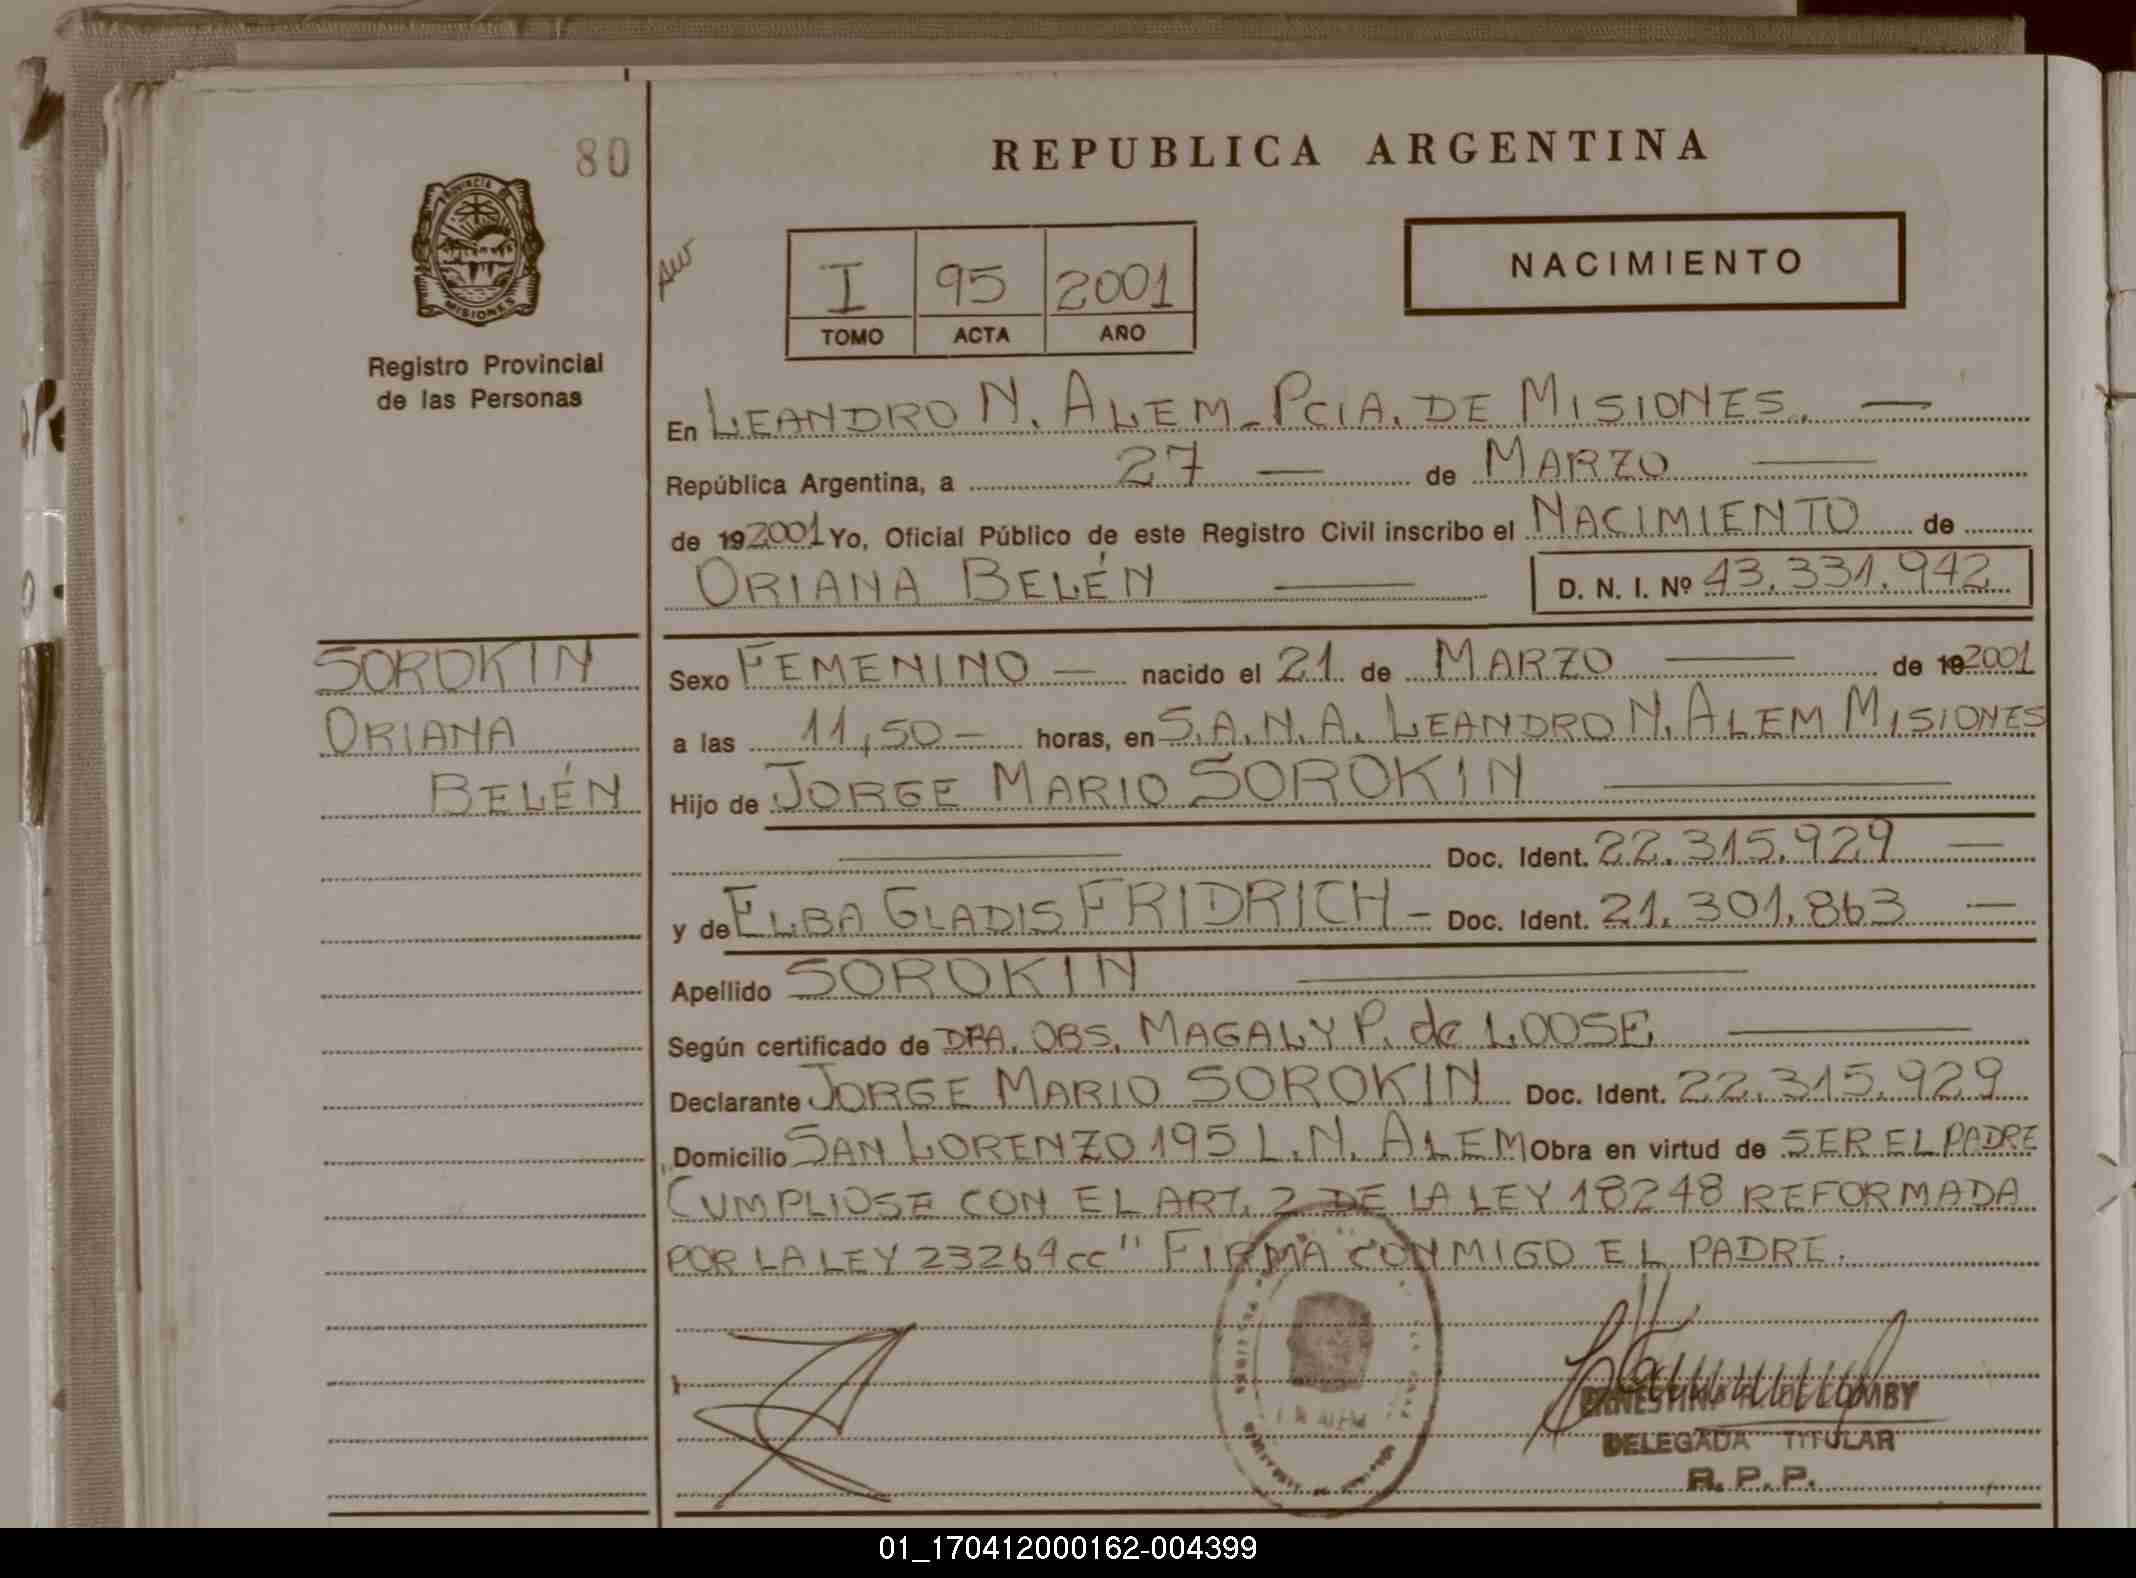 80
REPUBLICA ARGENTINA
PROVINCIA DE
MISIONES
Registro Provincial
de las Personas
I 95 2001
TOMO ACTA AÑO
NACIMIENTO
En LEANDRO N. ALEM - PCIA. DE MISIONES. —
República Argentina, a 27 — de MARZO —
de 192001 Yo, Oficial Público de este Registro Civil inscribo el NACIMIENTO de
ORIANA BELÉN — D. N. I. Nº 43.331.942
SOROKIN
ORIANA
BELÉN
Sexo FEMENINO — nacido el 21 de MARZO — de 192001
a las 11,50 — horas, en S.A.N.A. LEANDRO N. ALEM MISIONES
Hijo de JORGE MARIO SOROKIN —
— Doc. Ident. 22.315.929 —
y de ELBA GLADIS FRIDRICH — Doc. Ident. 21.301.863 —
Apellido SOROKIN —
Según certificado de DRA. OBS. MAGALY P. de LOOSE —
Declarante JORGE MARIO SOROKIN Doc. Ident. 22.315.929
Domicilio SAN LORENZO 195 L.N. ALEM Obra en virtud de SER EL PADRE
CUMPLIOSE CON EL ART. 2 DE LA LEY 18248 REFORMADA
POR LA LEY 23264 cc" FIRMA CONMIGO EL PADRE.
L N ALEM
DE LOMBY
DELEGADA TITULAR
R. P. P.
01_170412000162-004399